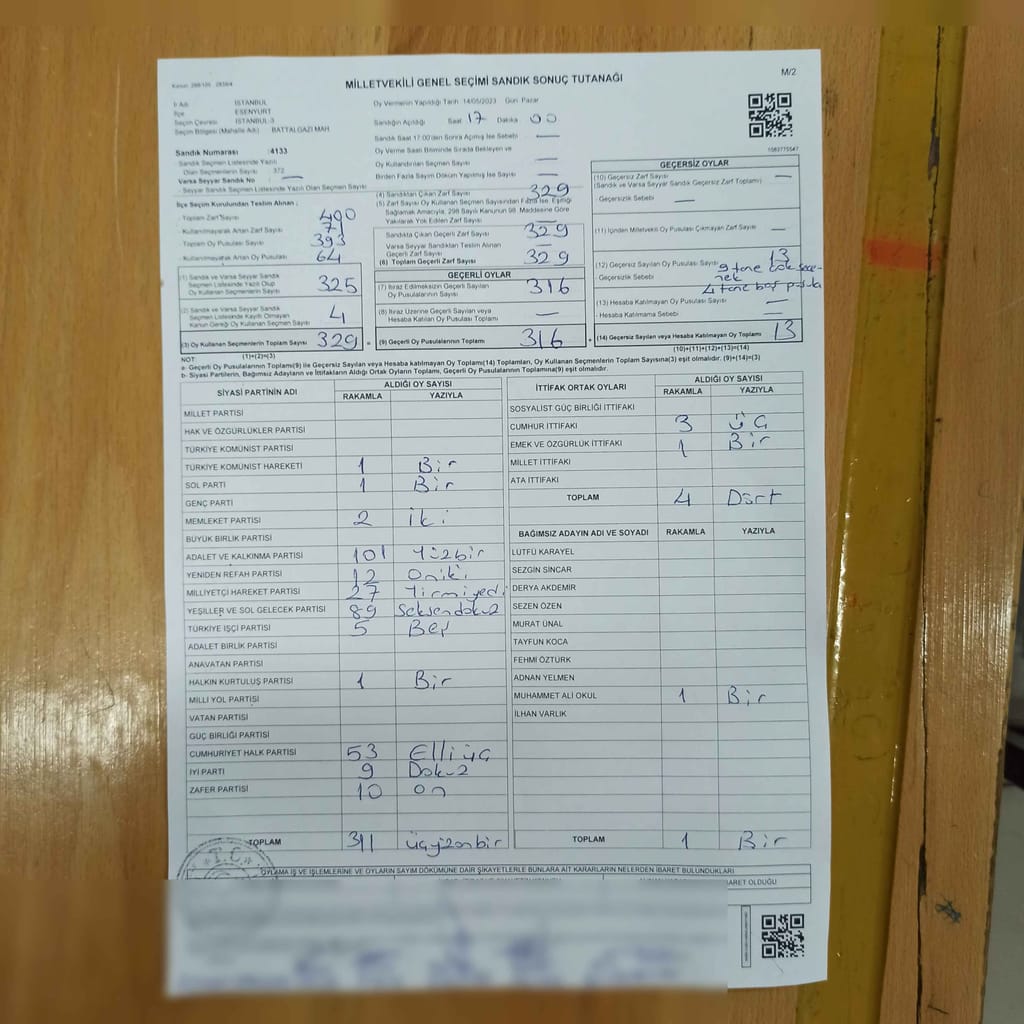 MİLLETVEKİLİ GENEL SEÇİMİ SANDIK SONUÇ TUTANAĞI
M/2
İl Adı İSTANBUL
İlçe ESENYURT
Seçim Çevresi İSTANBUL-3
Seçim Bölgesi (Mahalle Adı) BATTALGAZİ MAH.
Oy Vermenin Yapıldığı Tarih 14/05/2023 Gün Pazar
Sandığın Açıldığı Saat 17 Dakika 00
Sandık Saat 17:00'den Sonra Açılmış İse Sebebi —
Oy Verme Saati Bitiminde Sırada Bekleyen ve
Oy Kullandırılan Seçmen Sayısı —
Birden Fazla Sayım Döküm Yapılmış İse Sayısı —
Sandık Numarası :4133
Sandık Seçmen Listesinde Yazılı
Olan Seçmenlerin Sayısı 372
Varsa Seyyar Sandık No —
Seyyar Sandık Seçmen Listesinde Yazılı Olan Seçmen Sayısı
İlçe Seçim Kurulundan Teslim Alınan ;
Toplam Zarf Sayısı 400
Kullanılmayarak Artan Zarf Sayısı 71
Toplam Oy Pusulası Sayısı 393
Kullanılmayarak Artan Oy Pusulası 64
(1) Sandık ve Varsa Seyyar Sandık
Seçmen Listesinde Yazılı Olup
Oy Kullanan Seçmenlerin Sayısı 325
(2) Sandık ve Varsa Seyyar Sandık
Seçmen Listesinde Kayıtlı Olmayan
Kanun Gereği Oy Kullanan Seçmen Sayısı 4
(3) Oy Kullanan Seçmenlerin Toplam Sayısı 329
(1)+(2)=(3)
(4) Sandıktan Çıkan Zarf Sayısı 329
(5) Zarf Sayısı Oy Kullanan Seçmen Sayısından Fazla İse, Eşitliği
Sağlamak Amacıyla, 298 Sayılı Kanunun 98. Maddesine Göre
Yakılarak Yok Edilen Zarf Sayısı —
Sandıkta Çıkan Geçerli Zarf Sayısı 329
Varsa Seyyar Sandıktan Teslim Alınan
Geçerli Zarf Sayısı —
(6) Toplam Geçerli Zarf Sayısı 329
GEÇERLİ OYLAR
(7) İtiraz Edilmeksizin Geçerli Sayılan
Oy Pusulalarının Sayısı 316
(8) İtiraz Üzerine Geçerli Sayılan veya
Hesaba Katılan Oy Pusulası Toplamı —
= (9) Geçerli Oy Pusulalarının Toplamı 316
1083775547
GEÇERSİZ OYLAR
(10) Geçersiz Zarf Sayısı —
(Sandık ve Varsa Seyyar Sandık Geçersiz Zarf Toplamı)
Geçersizlik Sebebi —
(11) İçinden Milletvekili Oy Pusulası Çıkmayan Zarf Sayısı —
(12) Geçersiz Sayılan Oy Pusulası Sayısı 13
Geçersizlik Sebebi 9 tane çok seçenek
4 tane boş pusula
(13) Hesaba Katılmayan Oy Pusulası Sayısı —
Hesaba Katılmama Sebebi —
+ (14) Geçersiz Sayılan veya Hesaba Katılmayan Oy Toplamı 13
(10)+(11)+(12)+(13)=(14)
NOT:
a- Geçerli Oy Pusulalarının Toplamı(9) ile Geçersiz Sayılan veya Hesaba katılmayan Oy Toplamı(14) Toplamları, Oy Kullanan Seçmenlerin Toplam Sayısına(3) eşit olmalıdır. (9)+(14)=(3)
b- Siyasi Partilerin, Bağımsız Adayların ve İttifakların Aldığı Ortak Oyların Toplamı, Geçerli Oy Pusulalarının Toplamına(9) eşit olmalıdır.
SİYASİ PARTİNİN ADI ALDIĞI OY SAYISI
RAKAMLA YAZIYLA
MİLLET PARTİSİ
HAK VE ÖZGÜRLÜKLER PARTİSİ
TÜRKİYE KOMÜNİST PARTİSİ
TÜRKİYE KOMÜNİST HAREKETİ 1 Bir
SOL PARTİ 1 Bir
GENÇ PARTİ
MEMLEKET PARTİSİ 2 iki
BÜYÜK BİRLİK PARTİSİ
ADALET VE KALKINMA PARTİSİ 101 Yüzbir
YENİDEN REFAH PARTİSİ 12 Oniki
MİLLİYETÇİ HAREKET PARTİSİ 27 Yirmiyedi
YEŞİLLER VE SOL GELECEK PARTİSİ 89 Seksendokuz
TÜRKİYE İŞÇİ PARTİSİ 5 Beş
ADALET BİRLİK PARTİSİ
ANAVATAN PARTİSİ
HALKIN KURTULUŞ PARTİSİ 1 Bir
MİLLİ YOL PARTİSİ
VATAN PARTİSİ
GÜÇ BİRLİĞİ PARTİSİ
CUMHURİYET HALK PARTİSİ 53 Elliüç
İYİ PARTİ 9 Dokuz
ZAFER PARTİSİ 10 on
TOPLAM 311 üçyüzonbir
İTTİFAK ORTAK OYLARI ALDIĞI OY SAYISI
RAKAMLA YAZIYLA
SOSYALİST GÜÇ BİRLİĞİ İTTİFAKI
CUMHUR İTTİFAKI 3 üç
EMEK VE ÖZGÜRLÜK İTTİFAKI 1 Bir
MİLLET İTTİFAKI
ATA İTTİFAKI
TOPLAM 4 Dört
BAĞIMSIZ ADAYIN ADI VE SOYADI RAKAMLA YAZIYLA
LÜTFÜ KARAYEL
SEZGİN SİNCAR
DERYA AKDEMİR
SEZEN ÖZEN
MURAT ÜNAL
TAYFUN KOCA
FEHMİ ÖZTÜRK
ADNAN YELMEN
MUHAMMET ALİ OKUL 1 Bir
İLHAN VARLIK
TOPLAM 1 Bir
T.C.
OYLAMA İŞ VE İŞLEMLERİNE VE OYLARIN SAYIM DÖKÜMÜNE DAİR ŞİKAYETLERLE BUNLARA AİT KARARLARIN NELERDEN İBARET BULUNDUKLARI
İBARET OLDUĞU